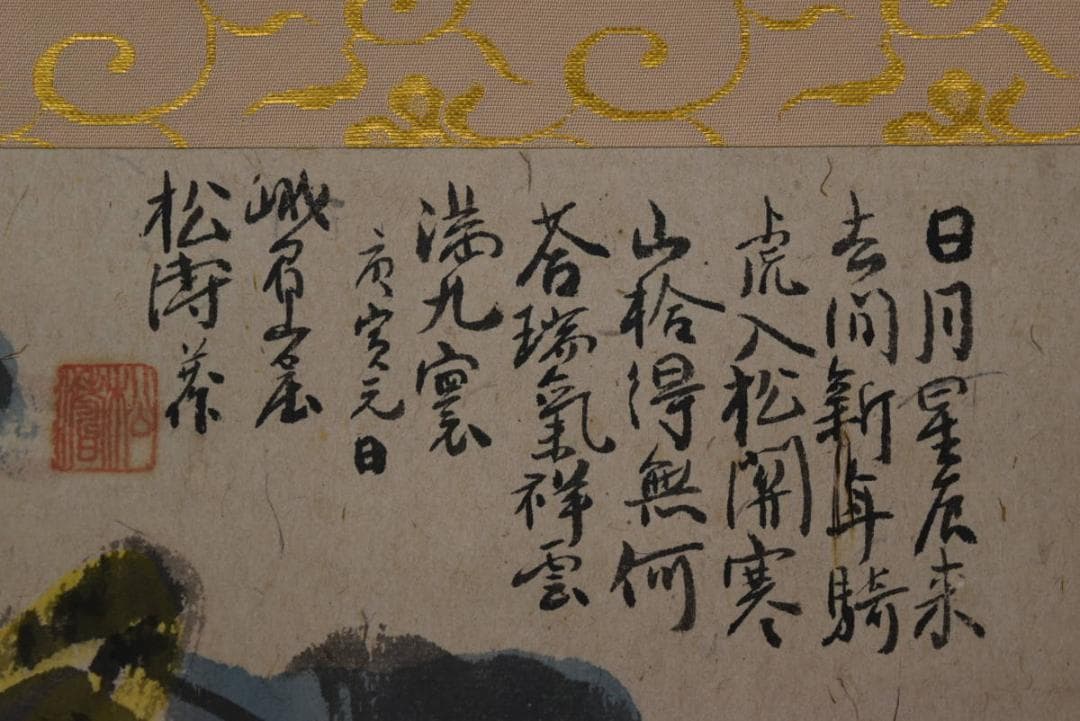 日月星辰来
去間新年騎
虎入松関寒
山拾得無何
答瑞氣祥雲
満九寰
庚寅元日
峨眉山屋
松濤并作
松濤